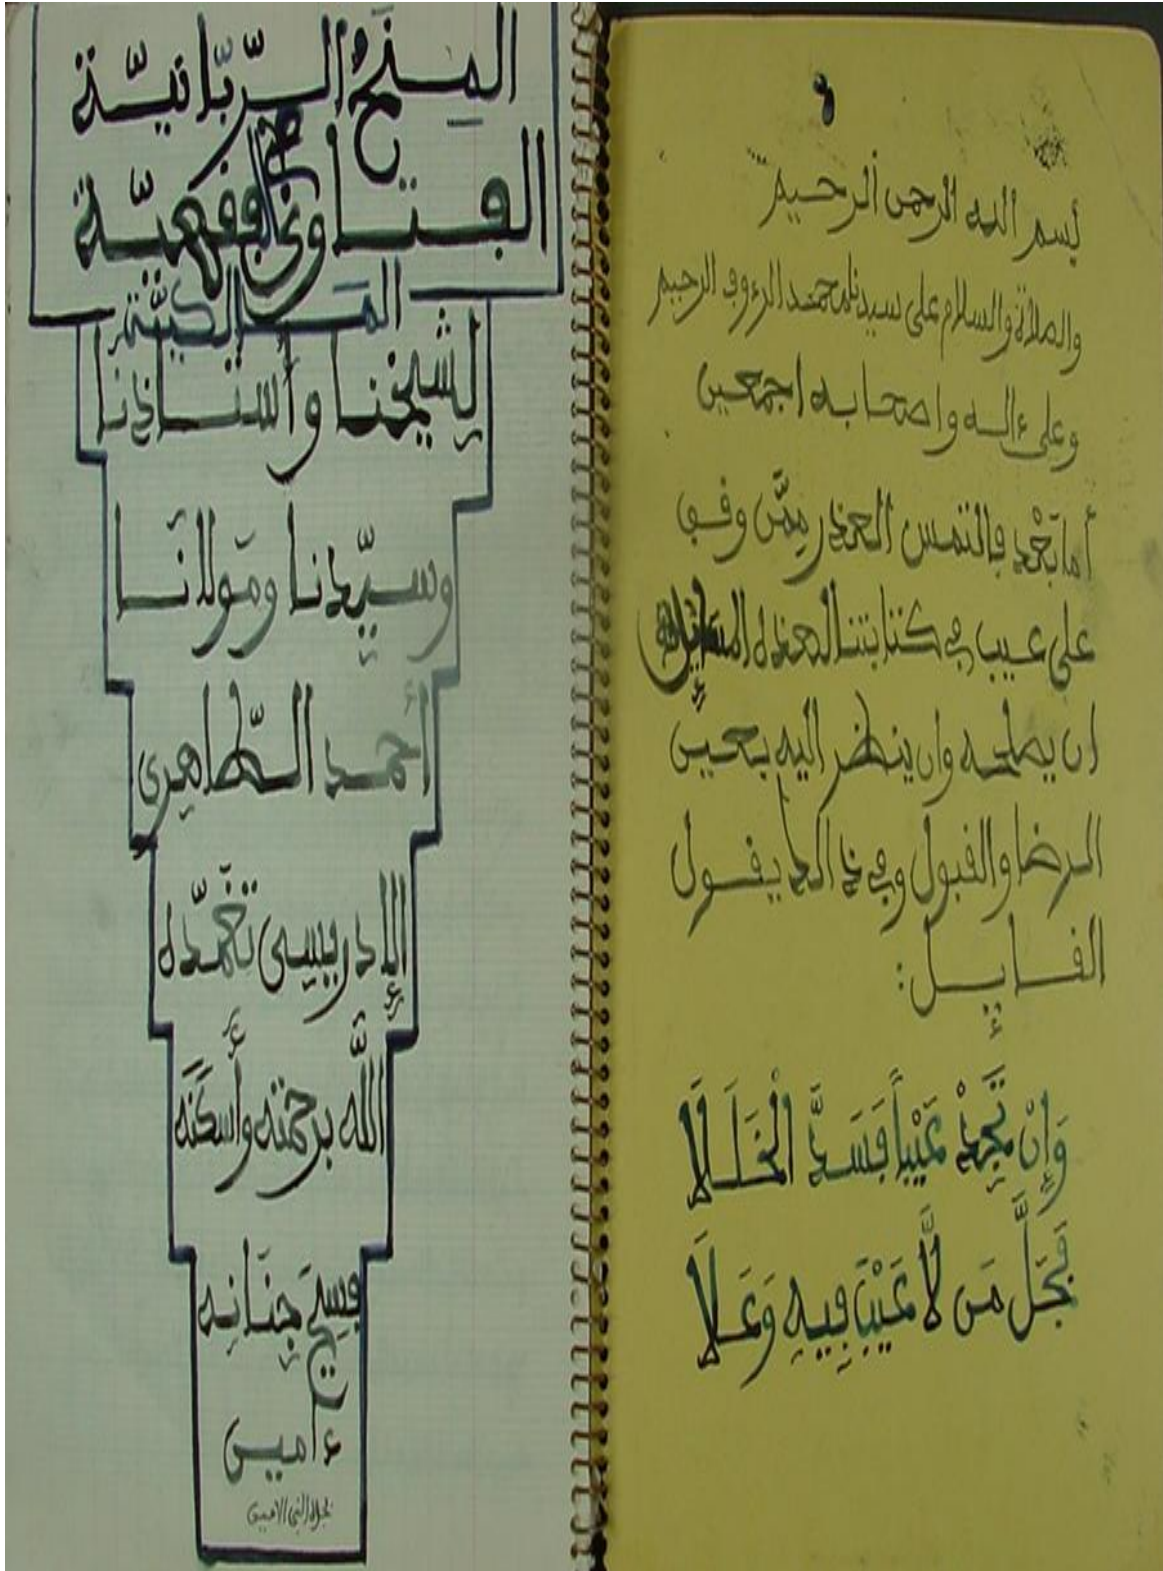 بسم الله الرحمن الرحيم
والصلاة والسلام على سيدنا محمد الرءوف الرحيم
وعلى ءاله واصحابه اجمعين
أما بَعْد فالتمس العذر مِمَّن وقف
على عيب في كتابتنا لهذه المسائل
ان يصلحه وان ينظر اليه بعين
الرضا والقبول وفي ذالك يقول
القائل:
وَإِنْ تَجِدْ عَيْباً فَسَدَّ الْخَلَلَا
فَجَلَّ مَن لَّا عَيْبَ فِيهِ وَعَلَا
المِنَحُ الرّبّانيّة
الفتاوى الفقهيّة
المالكيّة
لِشيخنا وأستاذنا
وسيّدنا ومَولانَا
أحمد الطّاهِري
الإدريسِي تغمّده
اللَّه برحمته وأسكنَه
فسِيح جِنَانِه
ءامين
بجاه النبي الامين